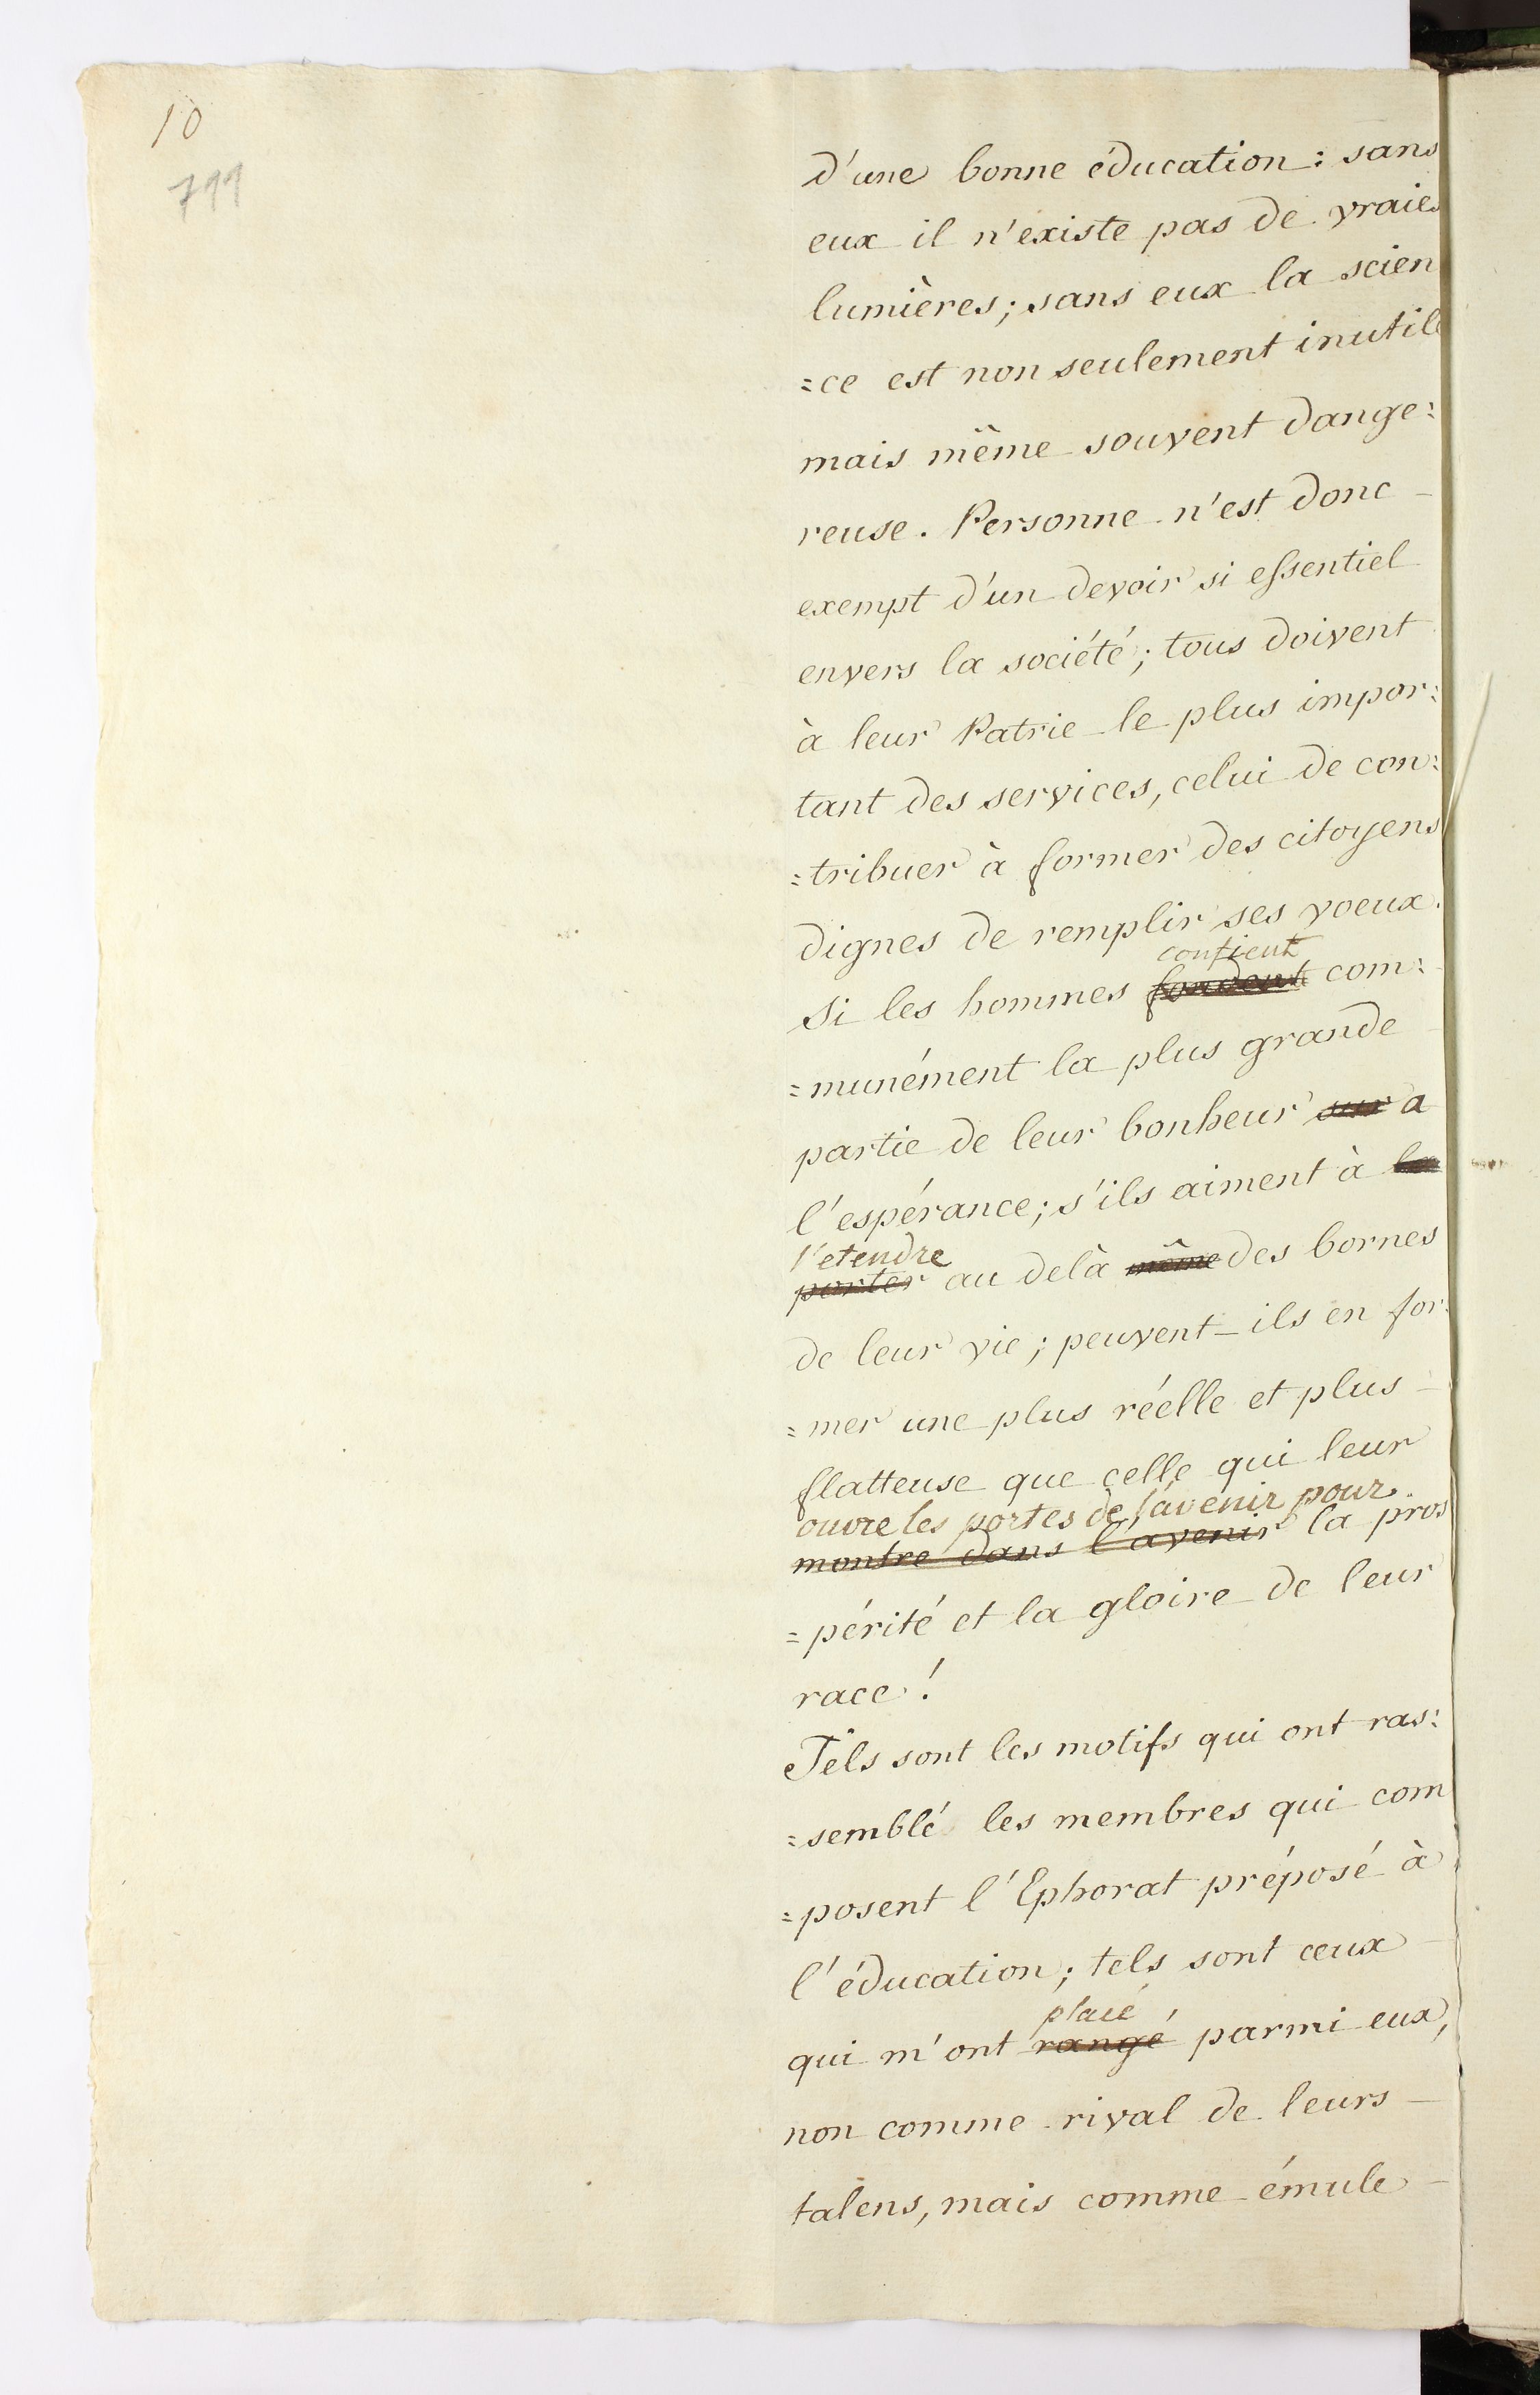 10
799
d'une bonne éducation : sans
eux il n'existe pas de vraies
lumières ; sans eux la scien
=ce est non seulement inutile
mais même souvent dange=
reuse. Personne n'est donc
exempt d'un devoir si essentiel
envers la société ; tous doivent
à leur Patrie le plus impor=
tant des services, celui de con=
=tribuer à former des citoyens
dignes de remplir ses voeux.
confient
Si les hommes fondent com=
=munément la plus grande
partie de leur bonheur sur a
l'espérance ; s'ils aiment à la
l'etendre
porter au delà même des bornes
de leur vie ; peuvent-ils en for=
=mer une plus réelle et plus
flatteuse que celle qui leur
ouvre les portes de l'avenir pour
montre dans l'avenir la pros
=périté et la gloire de leur
race !
Tels sont les motifs qui ont ras=
=semblé les membres qui com
=posent l'Ephorat préposé à
l'éducation ; tels sont ceux
placé
qui m'ont rangé parmi eux,
non comme rival de leurs
talens, mais comme émule